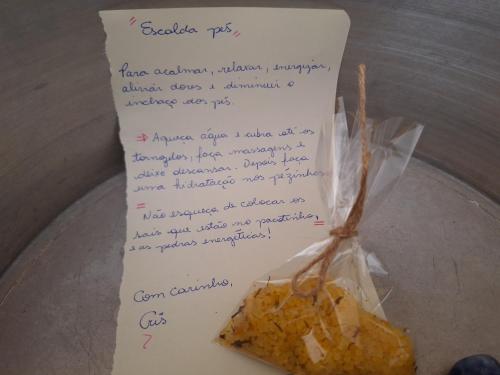 "Escalda pés"
Para acalmar, relaxar, energizar,
aliviar dores e diminuir o
inchaço dos pés.
⇒ Aqueça água e cubra até os
tornozelos, faça massagens e
deixe descansar. Depois faça
uma hidratação nos pezinhos.
= Não esqueça de colocar os
sais que estão no pacotinho,
e as pedras energéticas! =
Com carinho,
Cris